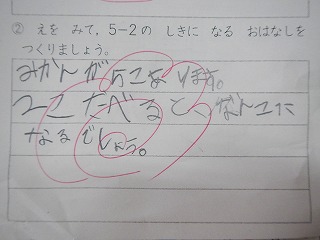 ② えを みて，5−2の しきに なる おはなしを
つくりましょう。
みかんが 5こあります。
2こ たべると、なんこに
なるでしょう。